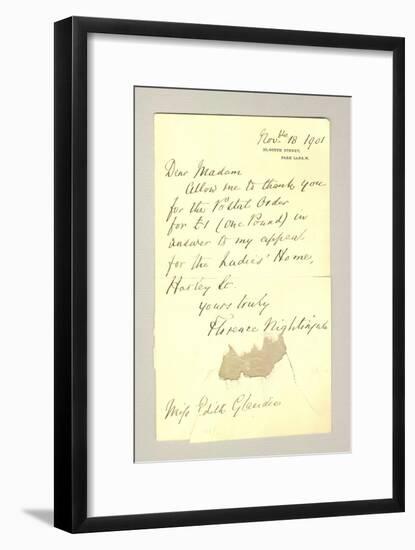 Nov. 18 1901
10, SOUTH STREET,
PARK LANE. W.
Dear Madam
Allow me to thank you
for the Postal Order
for £1 (One Pound) in
answer to my appeal
for the Ladies' Home,
Harley St.
yours truly
Florence Nightingale
Miss Edith